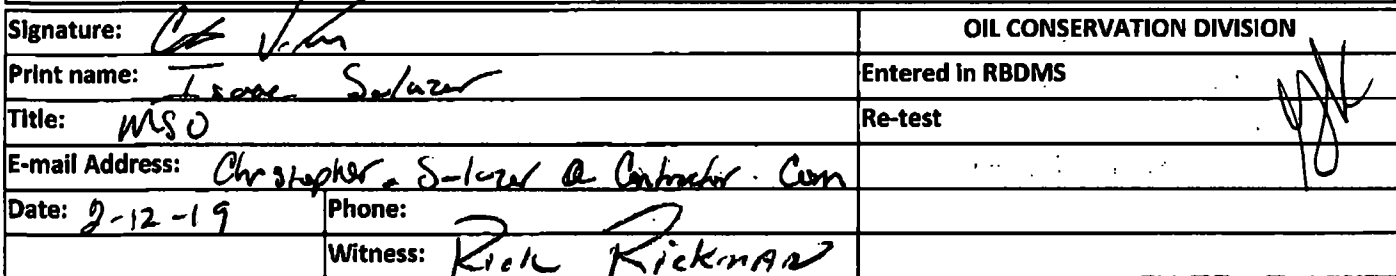 Signature:
OIL CONSERVATION DIVISION
Print name: Isaac Salazar
Entered in RBDMS
Title: MSO
Re-test
E-mail Address: Christopher_Salazar @ Contractor.Com
Date: 2-12-19
Phone:
Witness: Rick Rickman